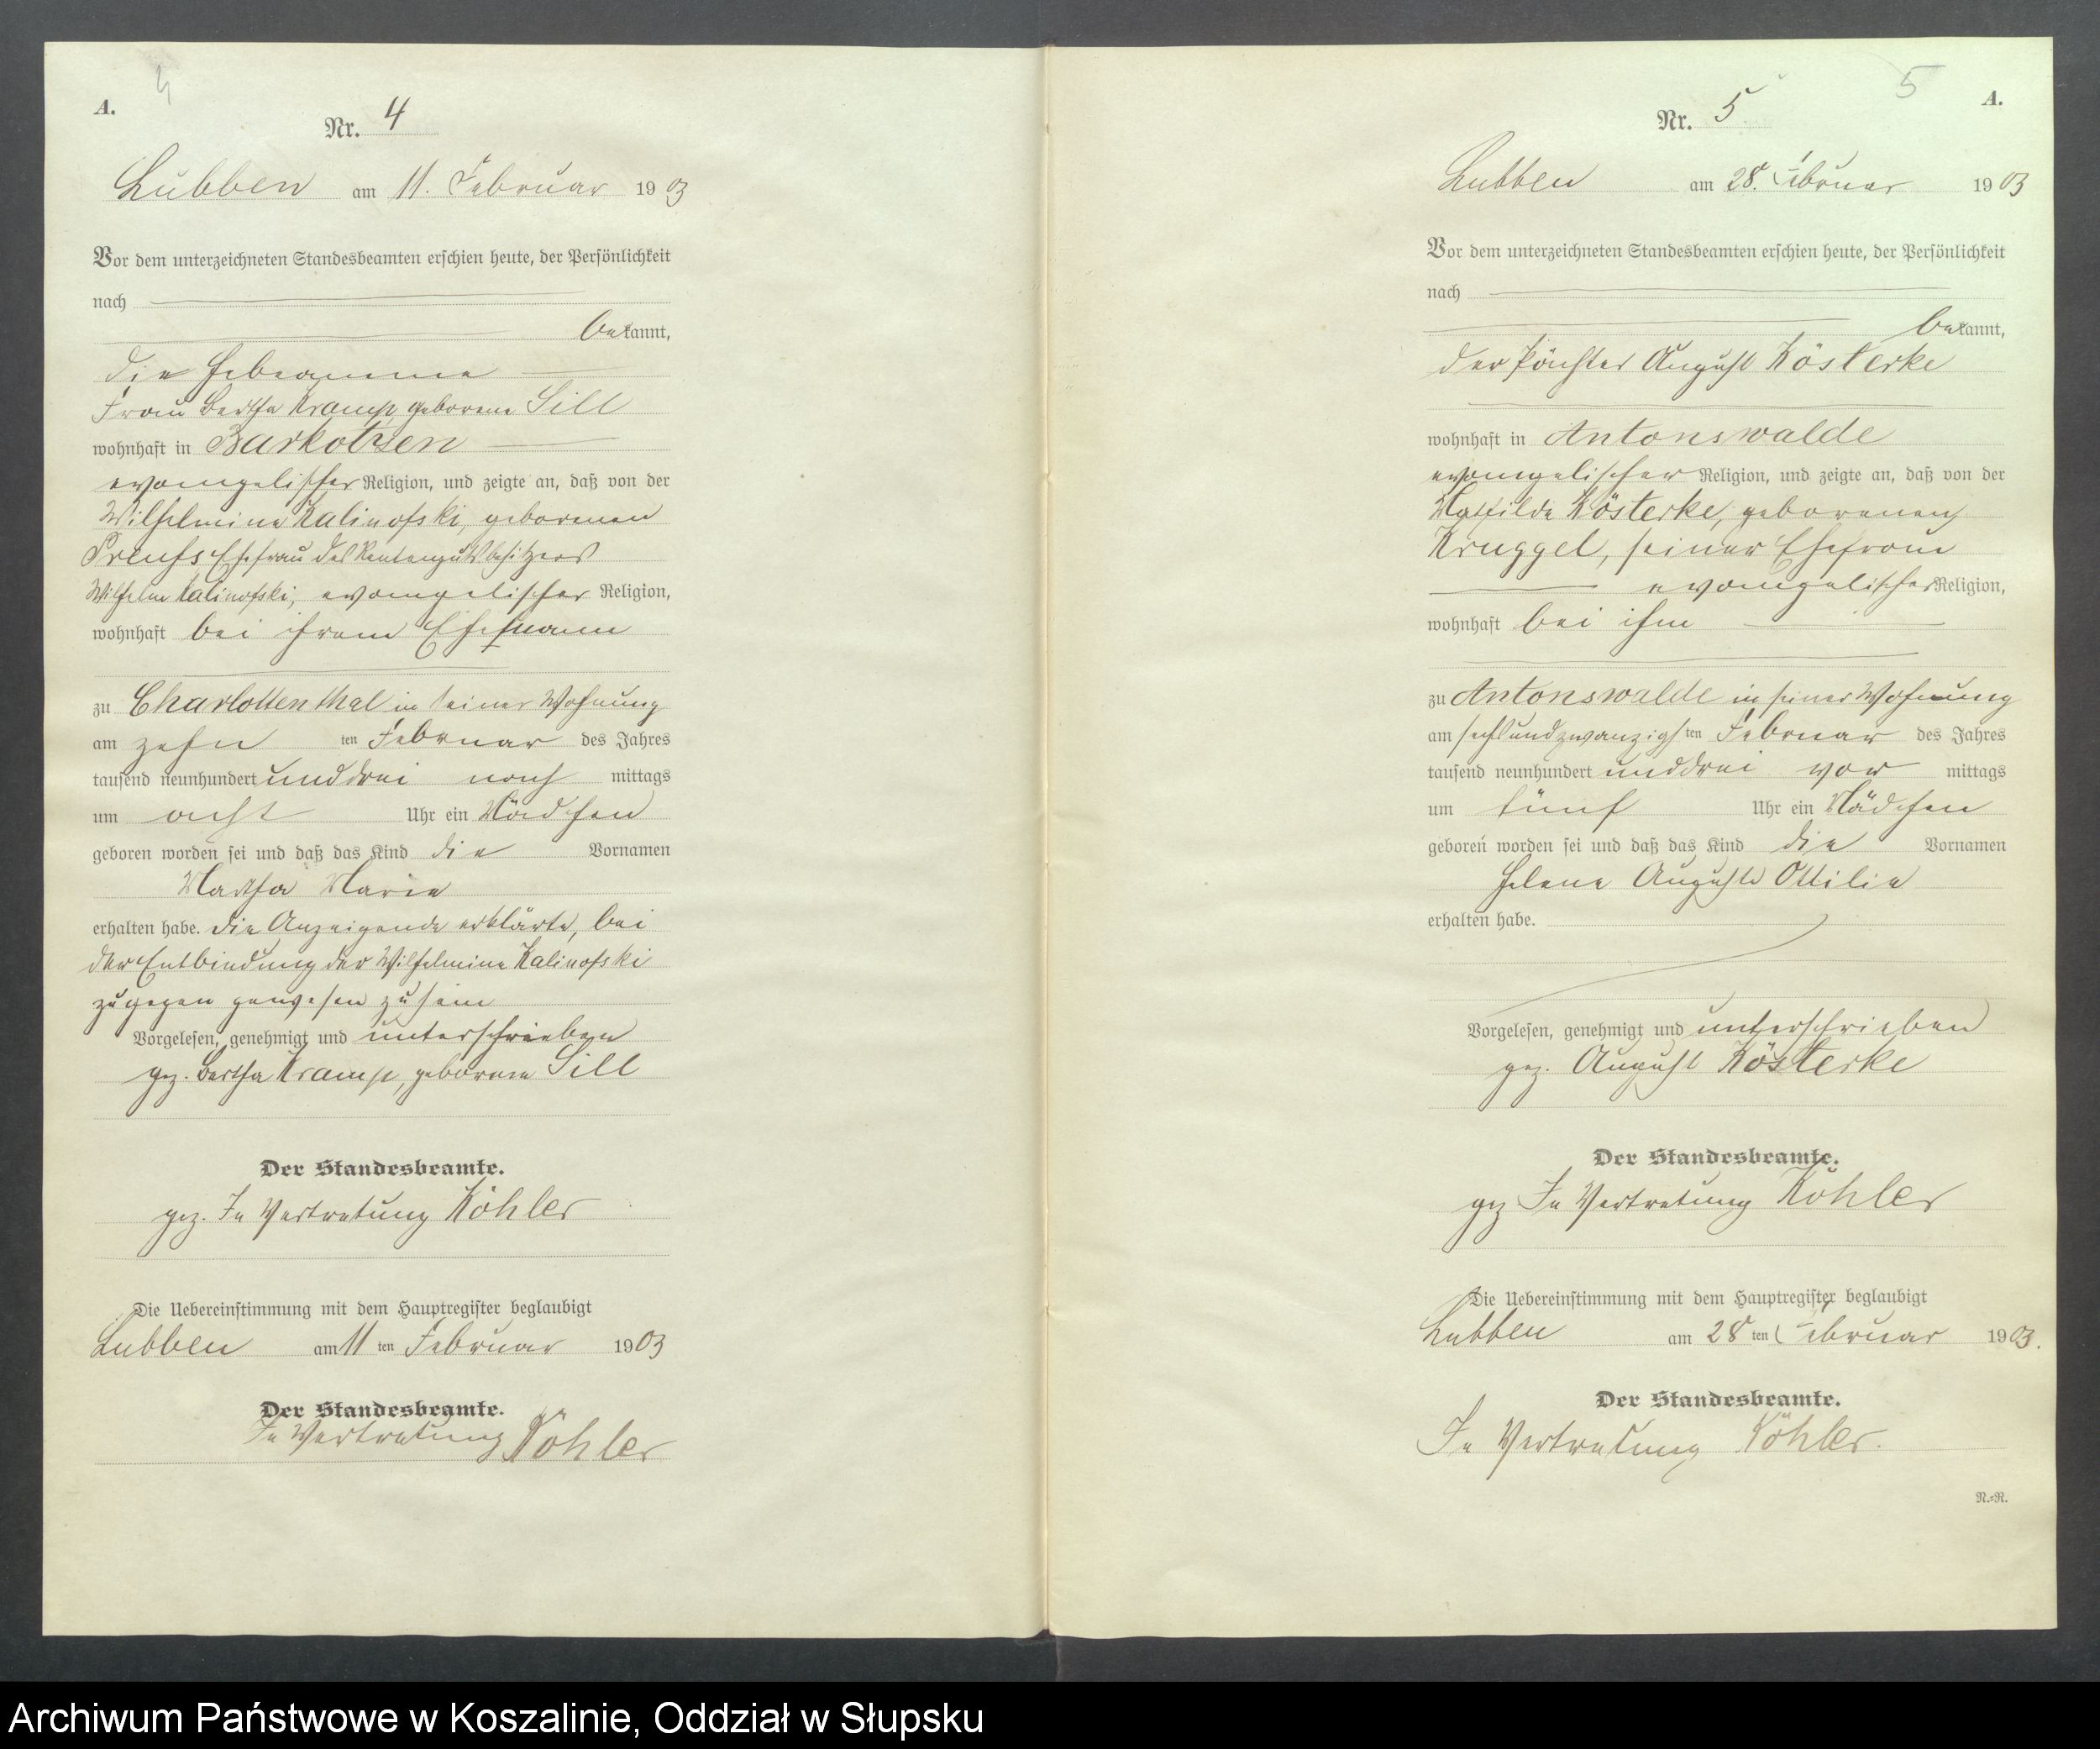 4
A.
Nr. 4
Lubben am 11. Februar 1903
Vor dem unterzeichneten Standesbeamten erschien heute, der Persönlichkeit
nach
bekannt,
die Hebeamme
Frau Bertha Kramp, geborene Sill
wohnhaft in Barkotzen
evangelischer Religion, und zeigte an, daß von der
Wilhelmine Kalinofski, geborenen
Preufs, Ehefrau des Rentengutsbesitzers
Wilhelm Kalinofski, evangelischer Religion,
wohnhaft bei ihrem Ehemann
zu Charlottenthal in seiner Wohnung
am zehn ten Februar des Jahres
tausend neunhundert und drei nach mittags
um acht Uhr ein Mädchen
geboren worden sei und daß das Kind die Vornamen
Martha Marie
erhalten habe. Die Anzeigende erklärte, bei
der Entbindung der Wilhelmine Kalinofski
zugegen gewesen zu sein
Vorgelesen, genehmigt und unterschrieben
gez. Bertha Kramp, geborene Sill
Der Standesbeamte.
gez. In Vertretung Köhler
Die Uebereinstimmung mit dem Hauptregister beglaubigt
Lubben am 11 ten Februar 1903
Der Standesbeamte.
In Vertretung Köhler
5
A.
Nr. 5
Lubben am 28. Februar 1903
Vor dem unterzeichneten Standesbeamten erschien heute, der Persönlichkeit
nach
bekannt,
der Pächter August Kösterke
wohnhaft in Antonswalde
evangelischer Religion, und zeigte an, daß von der
Mathilde Kösterke, geborenen
Kruggel, seiner Ehefrau
evangelischer Religion,
wohnhaft bei ihm
zu Antonswalde in seiner Wohnung
am sechsundzwanzigsten Februar des Jahres
tausend neunhundert und drei vor mittags
um fünf Uhr ein Mädchen
geboren worden sei und daß das Kind die Vornamen
Helene Auguste Ottilie
erhalten habe.
Vorgelesen, genehmigt und unterschrieben
gez. August Kösterke
Der Standesbeamte.
gez In Vertretung Köhler
Die Uebereinstimmung mit dem Hauptregister beglaubigt
Lubben am 28 ten Februar 1903.
Der Standesbeamte.
In Vertretung Köhler.
N.=R.
Archiwum Państwowe w Koszalinie, Oddział w Słupsku